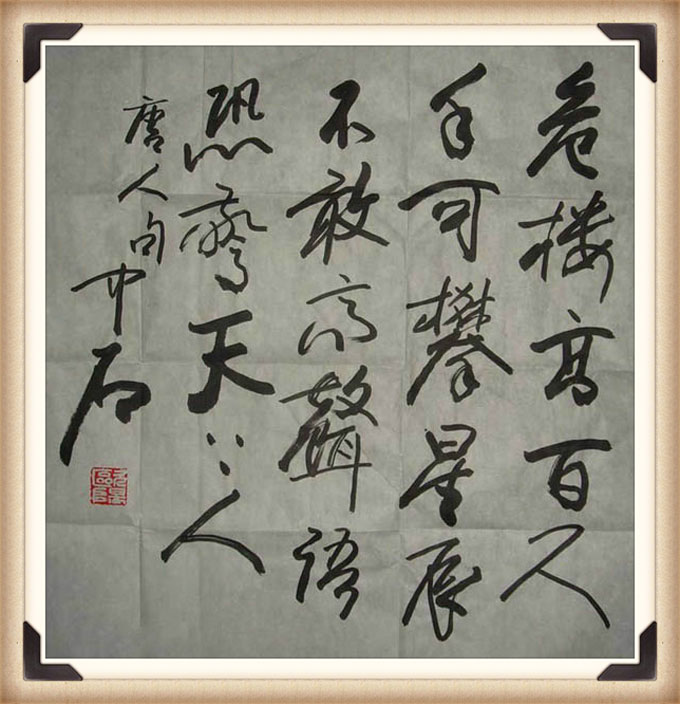 危楼高百尺
手可攀星辰
不敢高聲語
恐驚天上人
唐人句中石